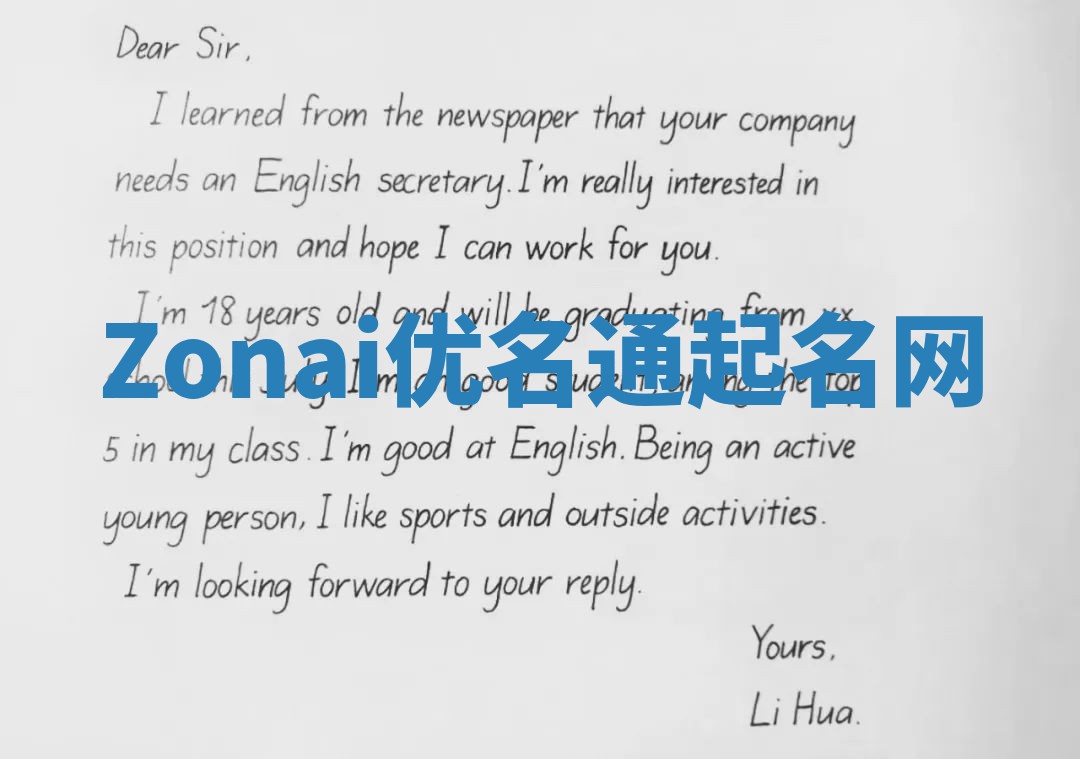 Dear Sir,
I learned from the newspaper that your company
needs an English secretary. I'm really interested in
this position and hope I can work for you.
I'm 18 years old and will be graduating from xx
Zonai优名通起名网
July. I'm good student, among the top
5 in my class. I'm good at English. Being an active
young person, I like sports and outside activities.
I'm looking forward to your reply.
Yours,
Li Hua.